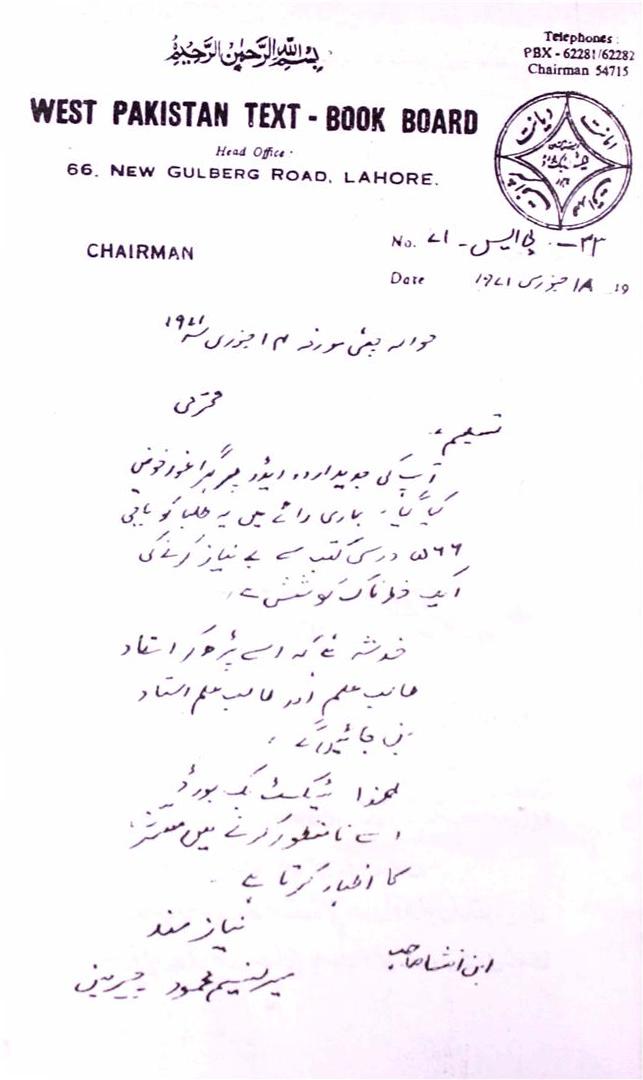 بسم اللہ الرحمن الرحیم
Telephones:
PBX - 62281/62282
Chairman 54715
WEST PAKISTAN TEXT - BOOK BOARD
Head Office ·
66. NEW GULBERG ROAD, LAHORE.
دیانت
امانت
CHAIRMAN
No. ۳۳ - پی ایس - ۷۱
Date ۱۸ جنوری ۱۹۷۱ 19
حوالہ چٹھی مورخہ ۱۴ جنوری ۱۹۷۱
محترمی
تسلیم۔
آپ کی جدید اردو ریڈر پر گہرا غور و خوض
کیا گیا۔ ہماری رائے میں یہ طلبا کو باقی
۵۶۶ درسی کتب سے بے نیاز کرنے کی
ایک خطرناک کوشش ہے۔
خدشہ ہے کہ اسے پڑھ کر استاد
طالب علم اور طالب علم استاد
بن جائیں گے۔
لہٰذا ٹیکسٹ بک بورڈ
اسے نامنظور کرنے میں مسرت
کا اظہار کرتا ہے۔
نیاز مند
ابن انشا صاحب
میر نسیم محمود چیئرمین